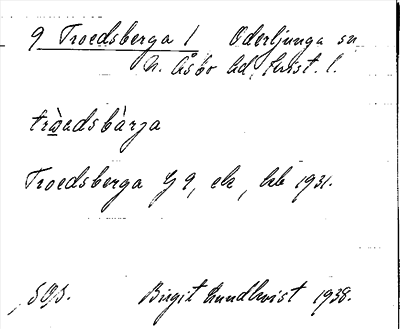 9 Troedsberga 1 Oderljunga sn
N. Åsbo hd, Krist. l.
tràedsbàrja
Troedsberga G 9, ek, kb 1931.
SOS. Birgit Lundkvist 1938.